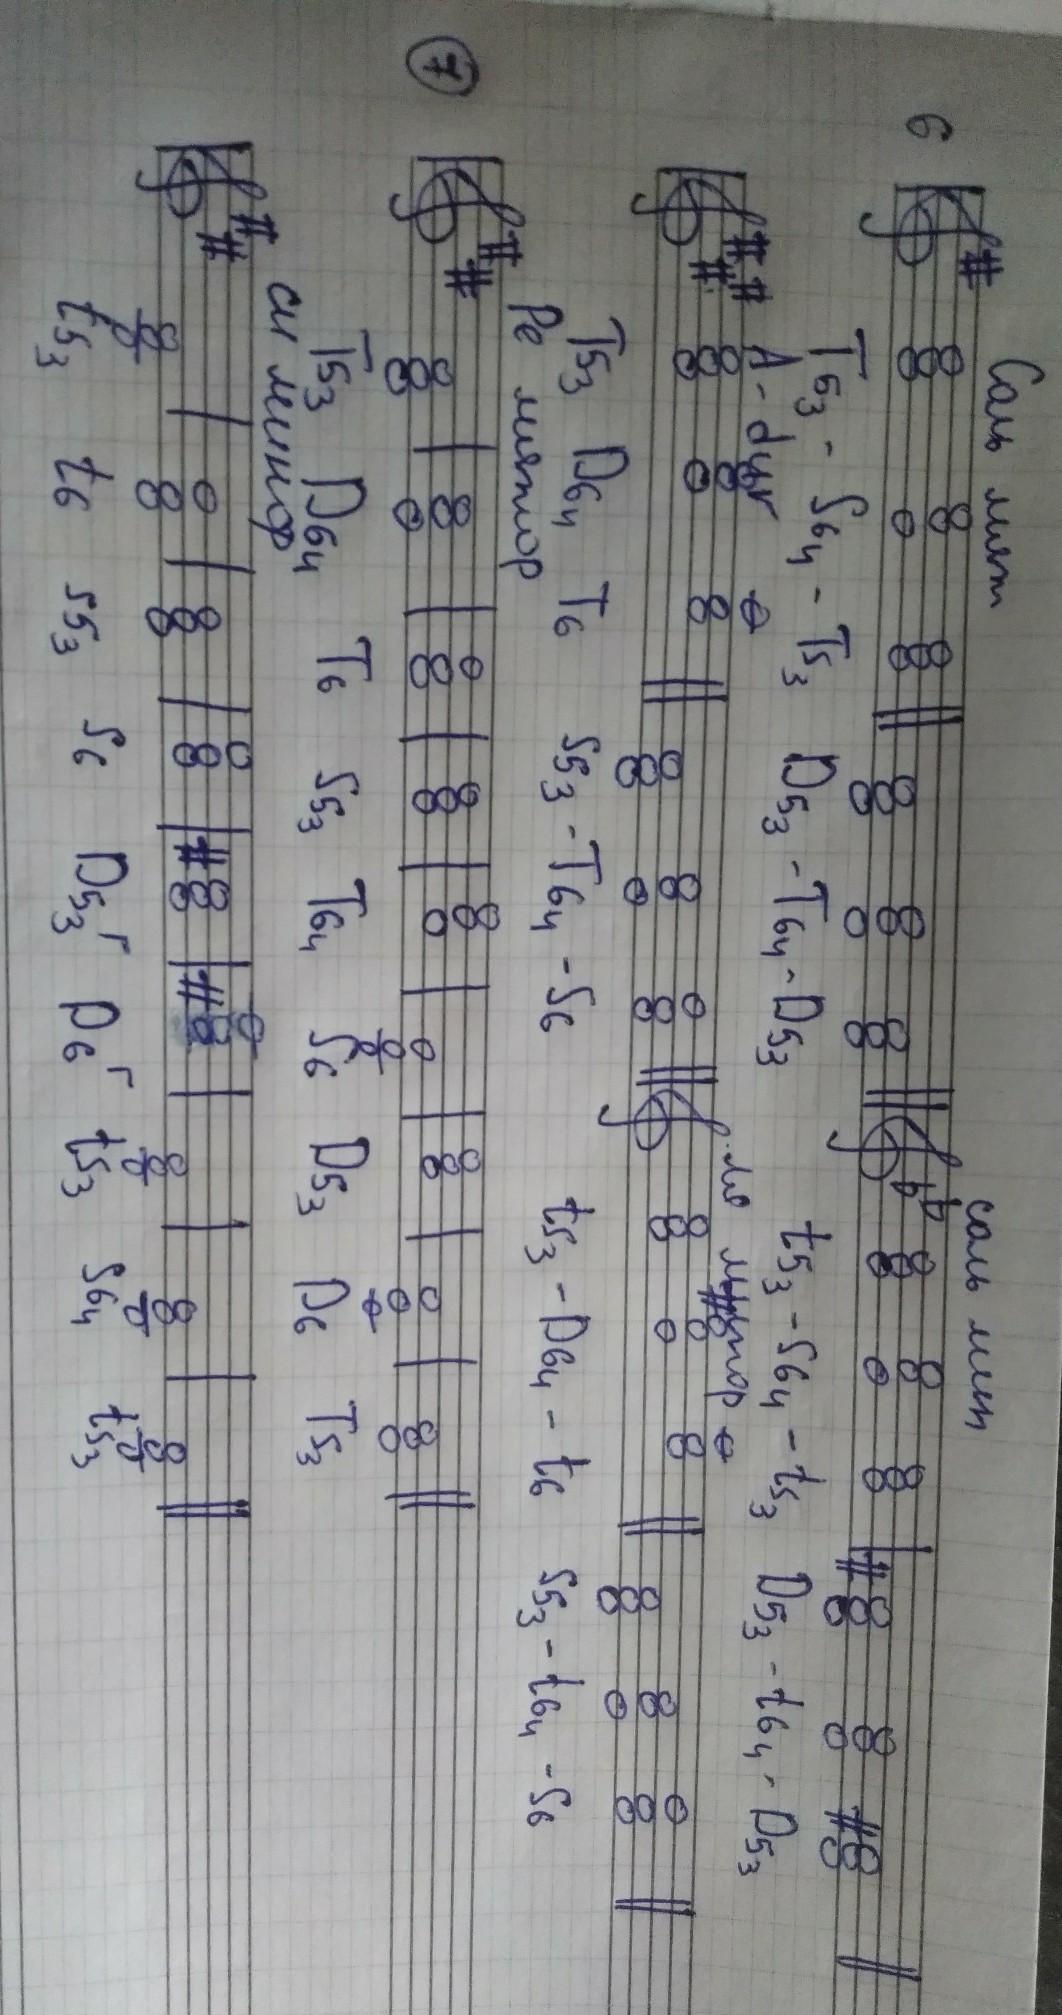 6
Соль маж соль мин
T53 - S64 - T53 D53 - T64 - D53 t53 - S64 - t53 D53 - t64 - D53
A-dur ля минор
T53 D64 T6 S53 - T64 - S6 t53 - D64 - t6 S53 - t64 - S6
7
Ре мажор
T53 D64 T6 S53 T64 S6 D53 D6 T53
си минор
t53 t6 S53 S6 D53г D6г t53 S64 t53